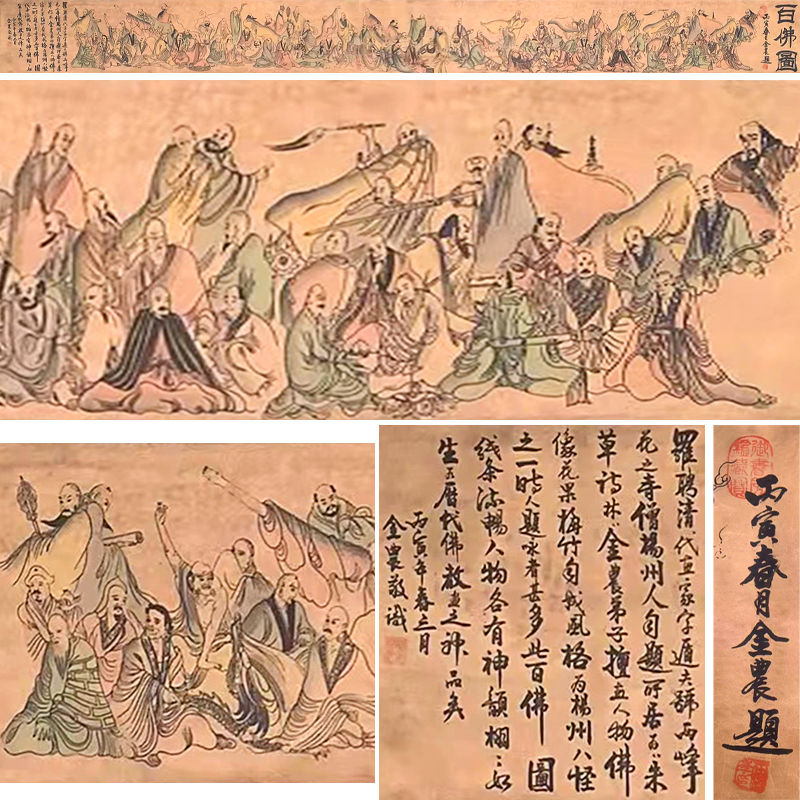 百佛圖
丙寅春月金農題
羅聘清代畫家字遁夫號兩峰
花之寺僧楊州人自題所居為朱
草詩林金農弟子擅畫人物佛
像花果梅竹自成風格為楊州八怪
之一時人題咏者甚多此百佛圖
线条流暢人物各有神韻栩栩如
生為歷代佛教畫之神品矣
丙寅年春三月
金農敬識
丙寅春月金農題